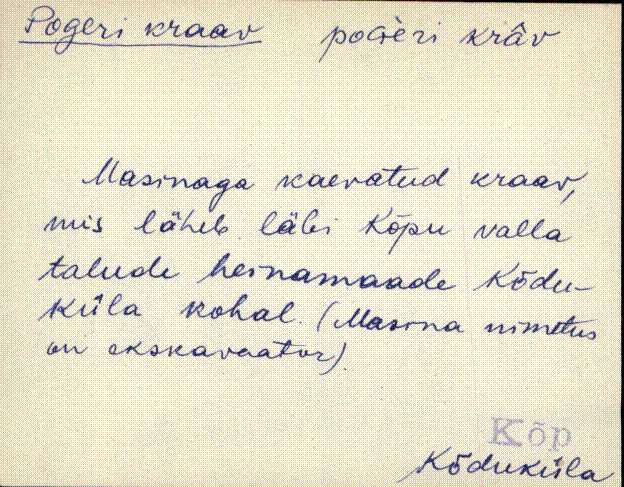 Pogeri kraav poGèri krâv
Masinaga kaevatud kraav,
mis läheb läbi Kõpu valla
talude heinamaade Kõdu-
küla kohal. (Masina nimetus
on ekskavaator)
Kõp
Kõduküla